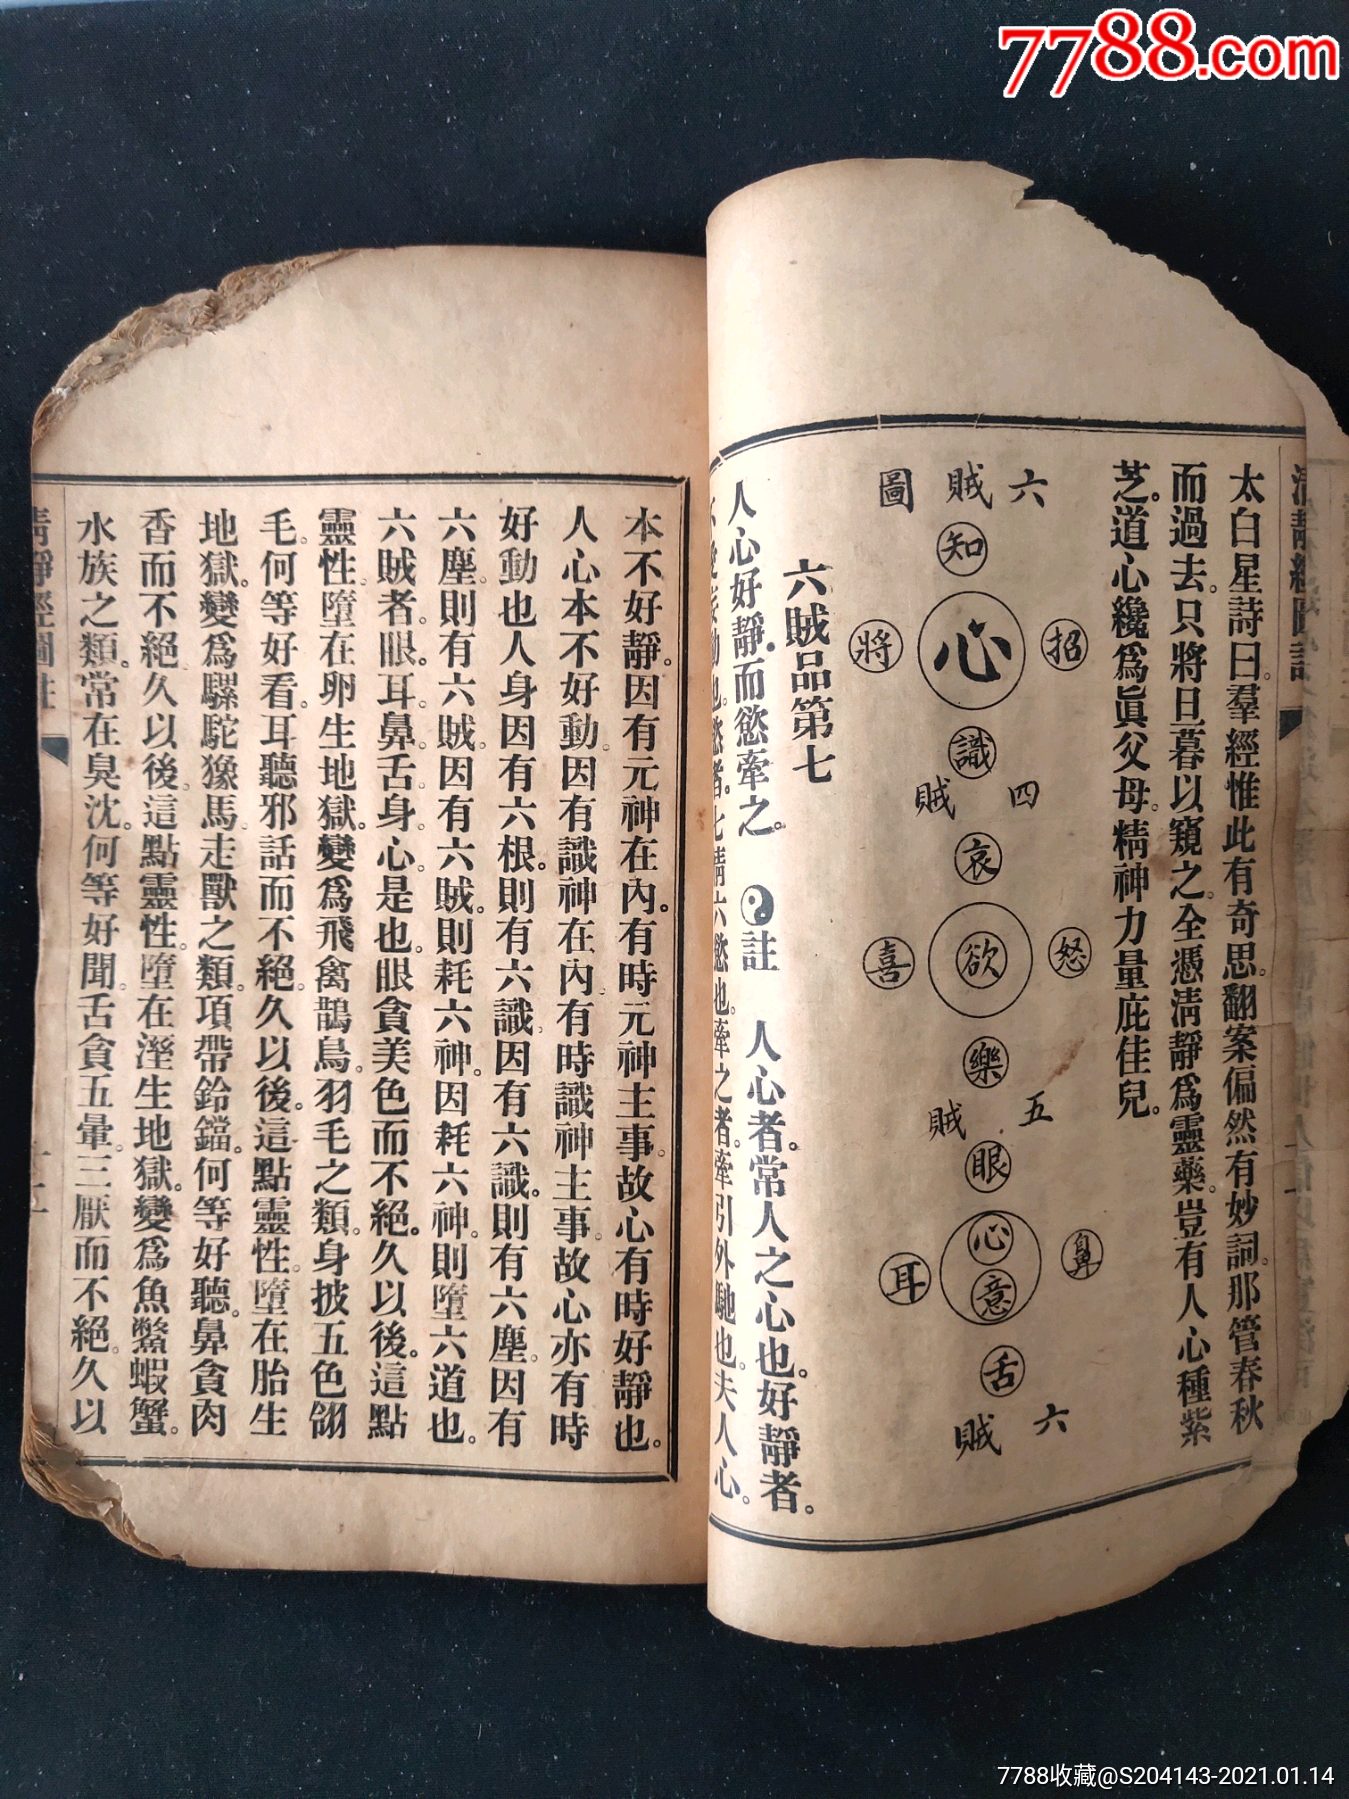 7788.com
清靜經圖註
太白星詩曰。羣經惟此有奇思。翻案偏然有妙詞。那管春秋
而過去。只將日暮以窺之。全憑清靜爲靈藥。豈有人心種紫
芝。道心纔爲眞父母。精神力量庇佳兒。
六賊圖
知
招
心
將
識
四賊
哀
怒
欲
喜
樂
五賊
眼
鼻
心意
耳
舌
六賊
六賊品第七
人心好靜。而慾牽之。 註 人心者。常人之心也。好靜者。
動也。慾者。七情六慾也。牽之者。牽引外馳也。夫人心。
本不好靜。因有元神在內。有時元神主事。故心有時好靜也。
人心本不好動。因有識神在內。有時識神主事。故心亦有時
好動也。人身因有六根。則有六識。因有六識。則有六塵。因有
六塵。則有六賊。因有六賊。則耗六神。因耗六神。則墮六道也。
六賊者。眼。耳。鼻。舌。身。心。是也。眼貪美色而不絕。久以後。這點
靈性。墮在卵生地獄。變爲飛禽鵲鳥。羽毛之類。身披五色翎
毛。何等好看。耳聽邪話而不絕。久以後。這點靈性。墮在胎生
地獄。變爲騾駝獉馬走獸之類。項帶鈴鐺。何等好聽。鼻貪肉
香而不絕。久以後。這點靈性。墮在溼生地獄。變爲魚鱉蝦蟹。
水族之類。常在臭沈。何等好聞。舌貪五葷。三厭而不絕。久以
清靜經圖註
十一
7788收藏@S204143-2021.01.14